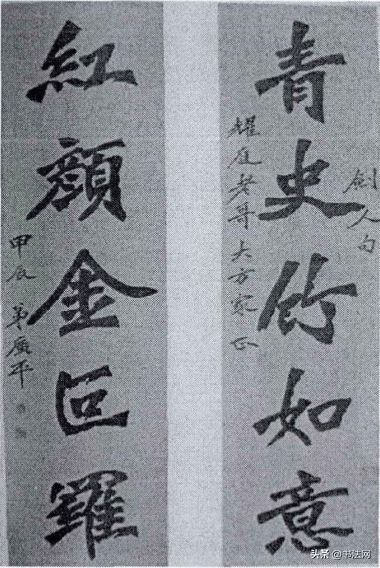 青史竹如意
剑人句
耀庭老哥大方家正
紅顔金叵羅
甲辰 弟廣平
头条 @书法网